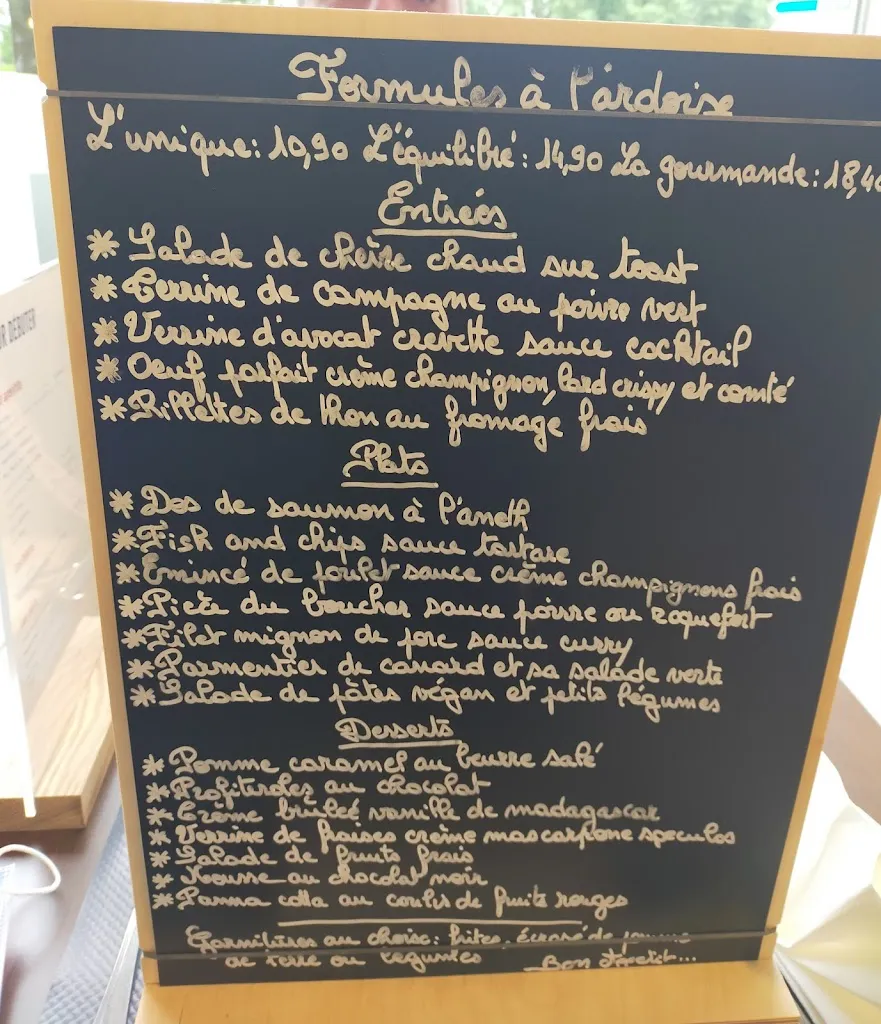 Formules à l'ardoise
L'unique: 10,90 L'équilibré: 14,90 La gourmande: 18,40
Entrées
* Salade de chèvre chaud sur toast
* Terrine de campagne au poivre vert
* Verrine d'avocat crevette sauce cocktail
* Oeuf parfait crème champignon, lard crispy et comté
* Rillettes de thon au fromage frais
Plats
* Dos de saumon à l'aneth
* Fish and chips sauce tartare
* Emincé de poulet sauce crème champignons frais
* Pièce du boucher sauce poivre ou roquefort
* Filet mignon de porc sauce curry
* Parmentier de canard et sa salade verte
* Salade de pâtes végan et petits légumes
Desserts
* Pomme caramel au beurre salé
* Profiteroles au chocolat
* Crème brûleé vanille de madagascar
* Verrine de fraises crème mascarpone speculos
* Salade de fruits frais
* Mousse au chocolat noir
* Panna cotta au coulis de fruits rouges
Garnitures au choix: frites, écrasé de pomme
de terre ou légumes Bon Appetit...
R DÉBUTER